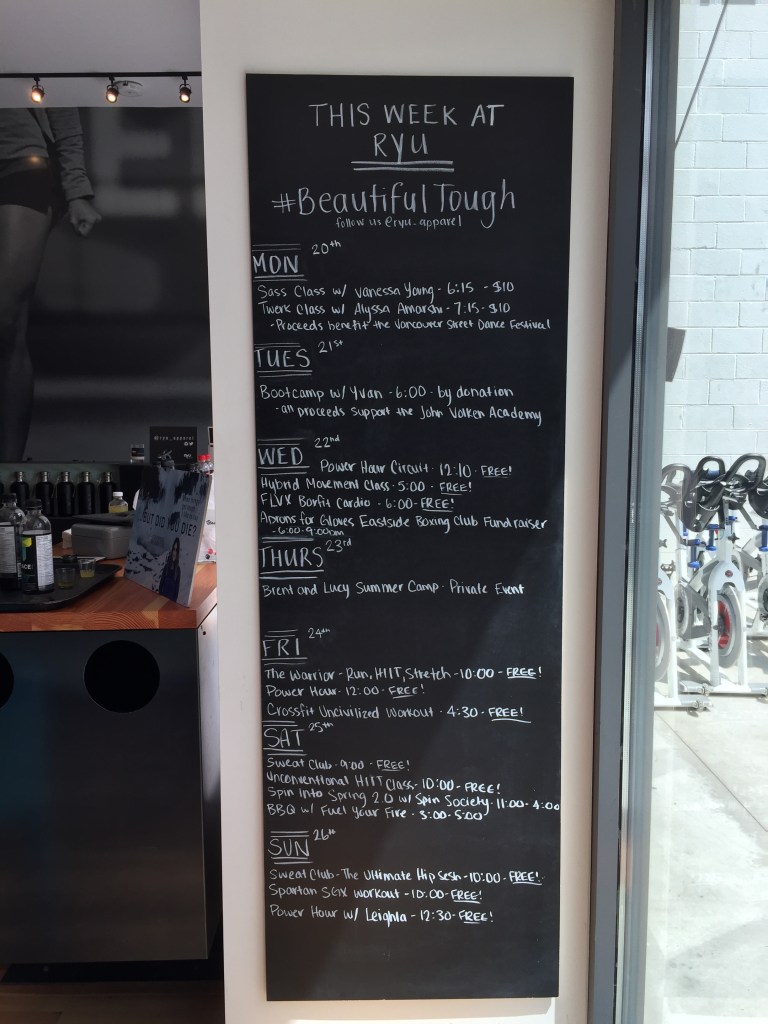 THIS WEEK AT
RYU
#BeautifulTough
follow us @ryu_apparel
MON 20th
Sass Class w/ Vanessa Young - 6:15 - $10
Twerk Class w/ Alyssa - 7:15 - $10
- Proceeds benefit the Vancouver Street Dance Festival
TUES 21st
Bootcamp w/ Yvan - 6:00 - by donation
- all proceeds support the John Volken Academy
WED 22nd
Power Hour Circuit - 12:10 - FREE!
Hybrid Movement Class - 5:00 - FREE!
FLVX Barfit Cardio - 6:00 - FREE!
Aprons for Gloves Eastside Boxing Club Fundraiser
- 6:00-9:00pm
THURS 23rd
Brent and Lucy Summer Camp - Private Event
FRI 24th
The Warrior - Run, HIIT, Stretch - 10:00 - FREE!
Power Hour - 12:00 - FREE!
Crossfit Uncivilized Workout - 4:30 - FREE!
SAT 25th
Sweat Club - 9:00 - FREE!
Unconventional HIIT Class - 10:00 - FREE!
Spin Into Spring 2.0 w/ Spin Society - 11:00 - 4:00
BBQ w/ Fuel Your Fire - 3:00 - 5:00
SUN 26th
Sweat Club - The Ultimate Hip Sesh - 10:00 - FREE!
Spartan SGX Workout - 10:00 - FREE!
Power Hour w/ Leighla - 12:30 - FREE!
@ryu_apparel
BUT DID YOU DIE?